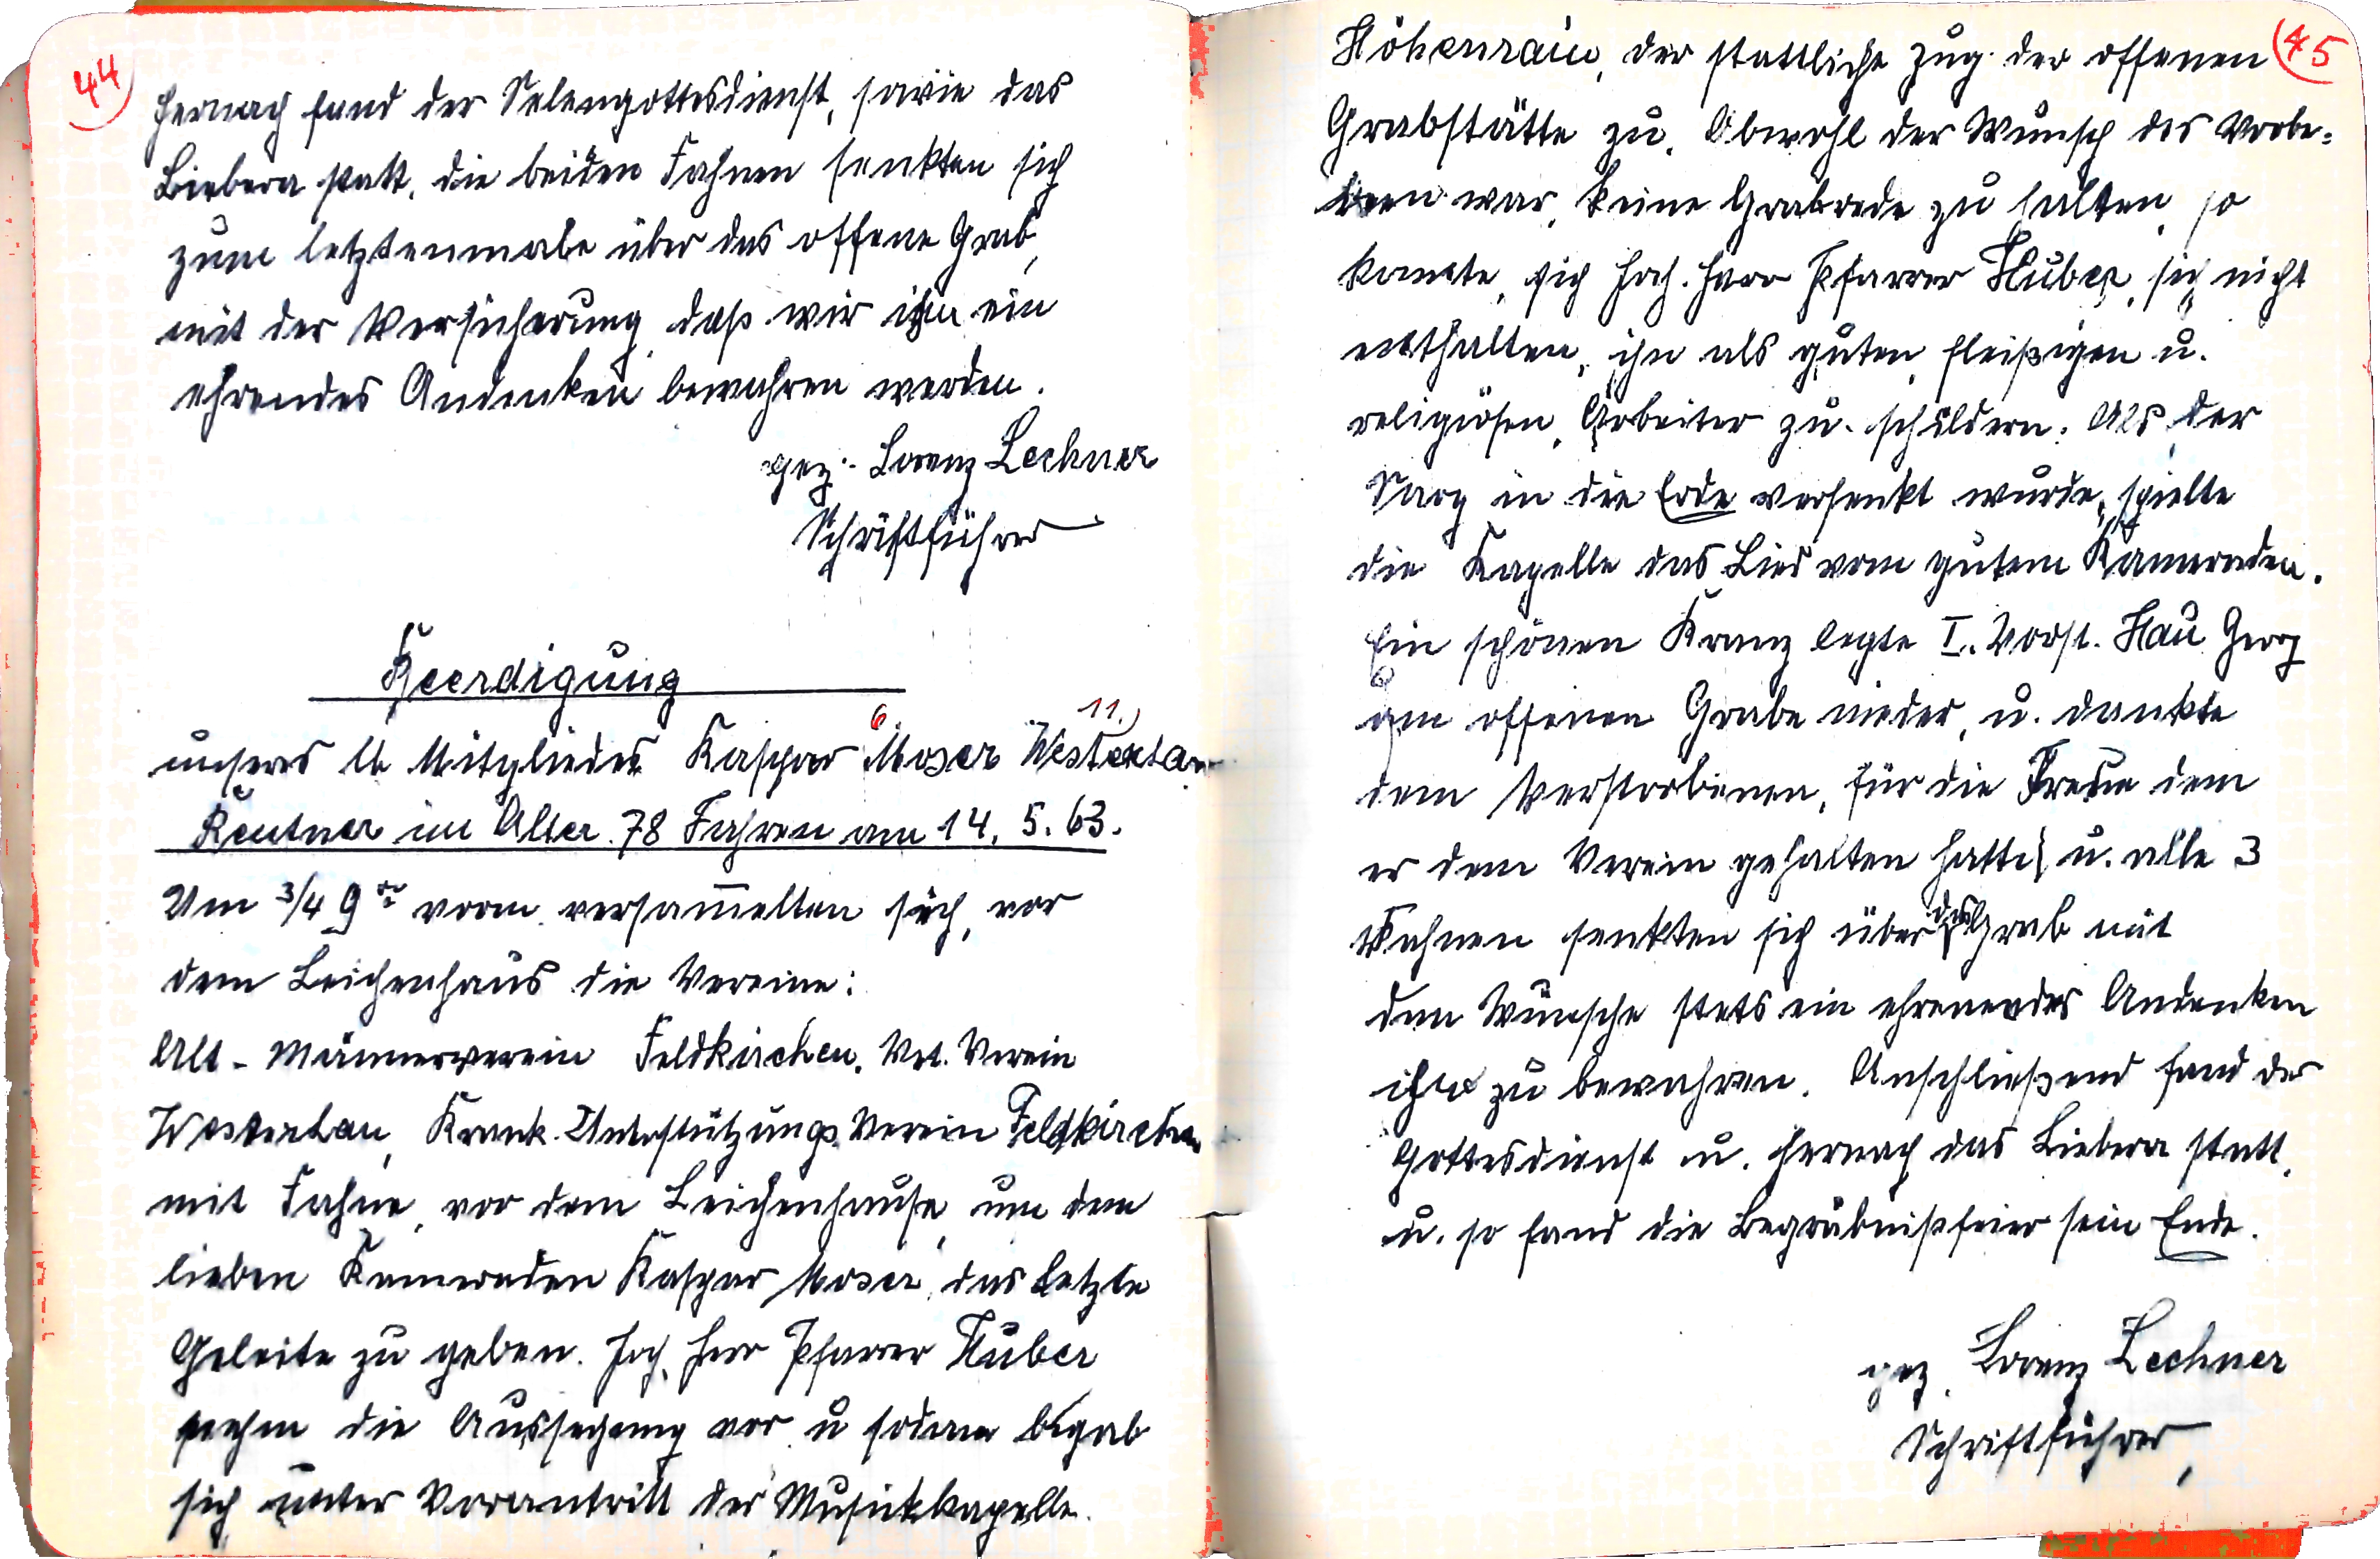 44
hernach fand der Selengottesdienst, sowie das
Liebera statt, die beiden Fahnen senkten sich
zum letztenmale über das offene Grab,
mit der Versicherung, daß wir ihm ein
ehrendes Andenken bewahren werden.
gez. Lorenz Lechner
Schriftführer
Beerdigung
6. 11.)
unseres lb. Mitgliedes Kaspar Moser Westerham
Rentner im Alter 78 Jahren am 14. 5. 63.
Um 3/4 9 vorm. versammelten sich, vor
dem Leichenhaus die Vereine:
Alt-Männerverein Feldkirchen, Vet. Verein
Westerham, Krank. Unterstützungs Verein Feldkirchen
mit Fahne, vor dem Leichenhause, um dem
lieben Kameraden Kaspar Moser, das letzte
Geleite zu geben. Hoch. Herr Pfarrer Huber
nahm die Aussegnung vor u sodann begab
sich unter Vorantritt der Musikkapelle
45
Höhenrain, der stattliche Zug der offenen
Grabstätte zu. Obwohl der Wunsch des Verstor=
benen war, keine Grabrede zu halten, so
konnte, sich Hoch. Herr Pfarrer Huber, sich nicht
enthalten, ihn als guten, fleißigen u.
religiösen, Arbeiter zu schildern. Als der
Sarg in die Erde versenkt wurde, spielte
die Kapelle das Lied vom gutem Kameraden.
Ein schönen Kranz legte I. Vorst. Hau Georg
am offenen Grabe nieder, u. dankte
dem Verstorbenen, für die Treue dem
er dem Verein gehalten hatte u. alle 3
Fahnen senkten sich über das Grab mit
dem Wunsche stets ein ehrenendes Andenken
ihm zu bewahren. Anschließend fand der
Gottesdienst u. hernach das Liebera statt,
u. so fand die Begräbnißfeier sein Ende.
gez. Lorenz Lechner
Schriftführer